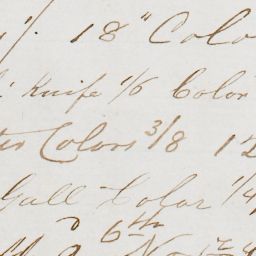 18" Colo
Knife 1/6 Color
Colors 3/8 12
Gall Color 1/4
6th